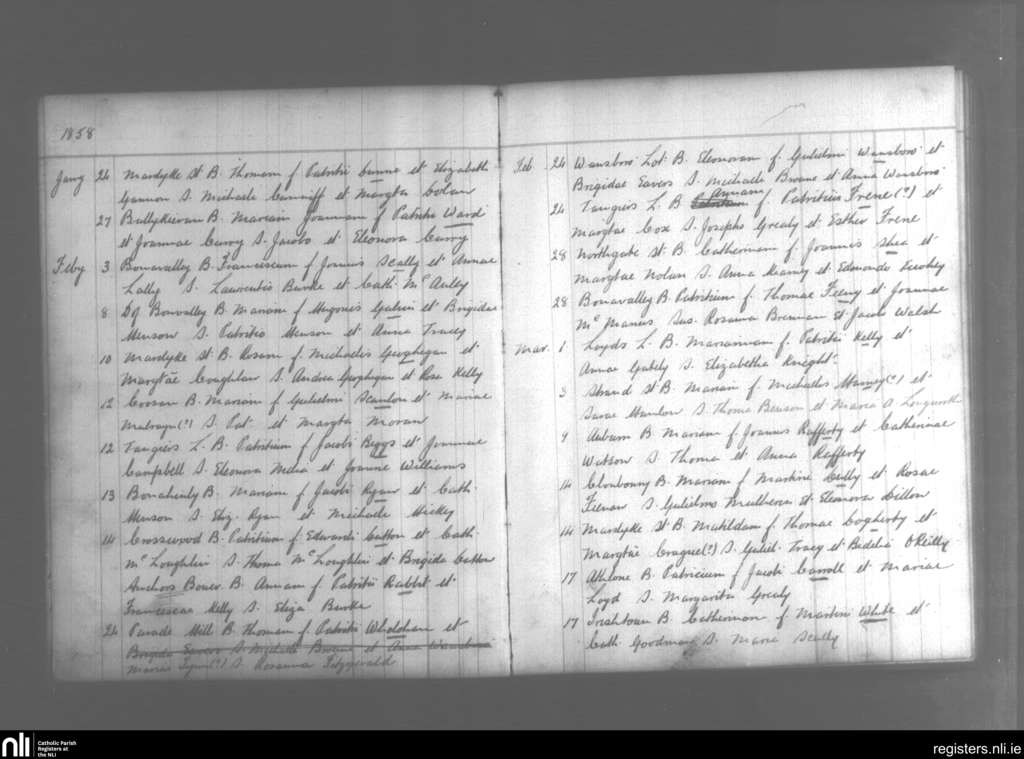 1858
Jany 24 Mardyke St B. Thomam f Patritii Cunnif et Elizabeth
Gannon S. Michaele Cunniff et Margta Dolan
27 Ballykeeran B. Mariam Joannam f Patritii Ward
et Joannae Curry S. Jacobo et Eleonora Curry
Feby 3 Bonavalley B. Franciscum f Joannis Scally et Annae
Lally S. Laurentio Burke et Cath. McAuley
8 Do Bonvalley B. Mariam f Hugonis Galvin et Brigidae
Henson S. Patritio Henson et Anna Tracey
10 Mardyke St B. Rosam f Michaelis Geoghegan et
Margtae Coughlan S. Andrea Geoghegan et Rose Kelly
12 Coosan B. Mariam f Gulielmi Scanlon et Mariae
(?) S. Pat. et Margta Moran
12 Tangiers L. B. Patritium f Jacobi Beggs et Joannae
Campbell S. Eleonora et Joanne Williams
13 B. Mariam f Jacobi Ryan et Cath.
Henson S. Eliz. Ryan et Michaele Hickey
14 Crosswood B. Patritium f Edwardi Cotton et Cath.
McLoughlin S. Thoma McLoughlin et Brigida Cotton
Anchors Bower B. Annam f Patritii Rabbit et
Franciscae Kelly S. Eliza Burke
24 Parade Mill B. Thomam f Patritii et
Brigida Eavers S. Michaele Browne et Anna Wansboro
Maria (?) S. Rosanna Fitzgerald
Feb 24 Wansboro Lot. B. Eleonoram f. Gulielmi Wansboro et
Brigidae Eavers S. Michaele Browne et Anna Wansboro
24 Tangiers L. B Annam f. Patritii Frene(?) et
Margtae Cox S. Josepho Grealy et Esther Frene
28 Northgate St B. Catherinam f Joannis Shea et
Margtae Nolan S. Anna Keaney et Edmondo
28 Bonavalley B. Patritium f Thomae Feeny et Joannae
McManus Sus. Rosanna Brennan et Jacobo Walsh
Mar. 1 Loyds L. B. Mariannam f. Patritii Kelly et
Annae Gately S. Elizabetha Knight
3 Strand St B. Mariam f Michaelis (?) et
Sarae Hanlon S. Thoma Benson et Maria A. Longworth
9 Auburn B Mariam f Joannis Rafferty et Catherinae
Watson S Thoma et Anna Rafferty
14 Clonbonny B. Mariam f Martini et Rosae
S Gulielmo Mulhern et Eleonora Dillon
14 Mardyke St B. Matildam f Thomae Cogherty et
Margtae (?) S. Guliel. Tracy et Bidelia O'Reilly
17 Athlone B Patricium f Jacobi Carroll et Mariae
Loyd S Margarita Grealy
17 Irishtown B. Catherinam f Martini White et
Cath Goodman S. Maria Scully
nli
Catholic Parish
Registers at
the NLI
registers.nli.ie